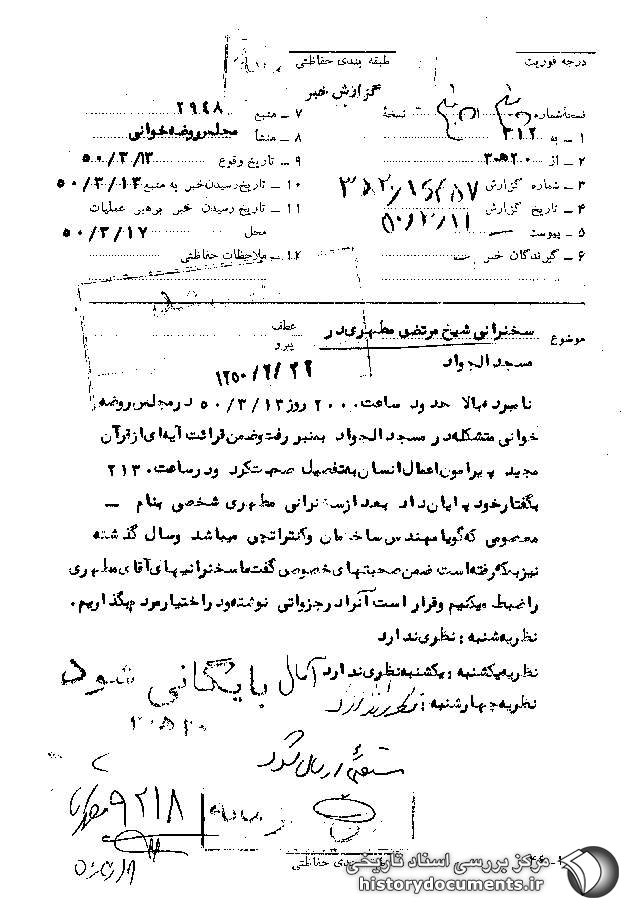 درجه فوریت
طبقه بندی حفاظتی
گزارش خبر
نسخهٔ شماره
نسخهٔ
۱ ـ به ۳۱۲
۲ ـ از ۲۰ه۳
۳ ـ شماره گزارش
۴ ـ تاریخ گزارش
۵ ـ پیوست
۶ ـ گیرندگان خبر
۷ ـ منبع ۲۹۴۸
۸ ـ منشأ مجلس روضه خوانی
۹ ـ تاریخ وقوع ۵۰/۳/۱۳
۱۰ ـ تاریخ رسیدن خبر به منبع ۵۰/۳/۱۳
۱۱ ـ تاریخ رسیدن خبر برهبر عملیات
محل ۵۰/۳/۱۷
۱۲ ـ ملاحظات حفاظتی
موضوع
سخنرانی شیخ مرتضی مطهری در
مسجد الجواد
عطف
پیرو
نامبرده بالا حدود ساعت ۲۰۰۰ روز ۵۰/۳/۱۳ در مجلس روضه
خوانی متشکله در مسجد الجواد بمنبر رفت وضمن قرائت آیه ای از قرآن
مجید پیرامون اعمال انسان به تفصیل صحبت کرد ودر ساعت ۲۱۳۰
بگفتار خود پایان داد بعد از سخنرانی مطهری شخصی بنام ـ
معصومی که گویا مهندس ساختمان وکنتراتچی میباشد وسال گذشته
نیز بمکه رفته است ضمن صحبتهای خصوصی گفت ما سخنرانیهای آقای مطهری
را ضبط میکنیم وقرار است آنرا در جزواتی نوشته ودر اختیار مردم بگذاریم.
نظریه شنبه : نظری ندارد
نظریه یکشنبه : یکشنبه نظری ندارد
نظریه چهارشنبه : نظری ندارد
بایگانی شود
۲۰ه۳
۹۲۱۸
طبقه بندی حفاظتی
مرکز بررسی اسناد تاریخی
historydocuments.ir